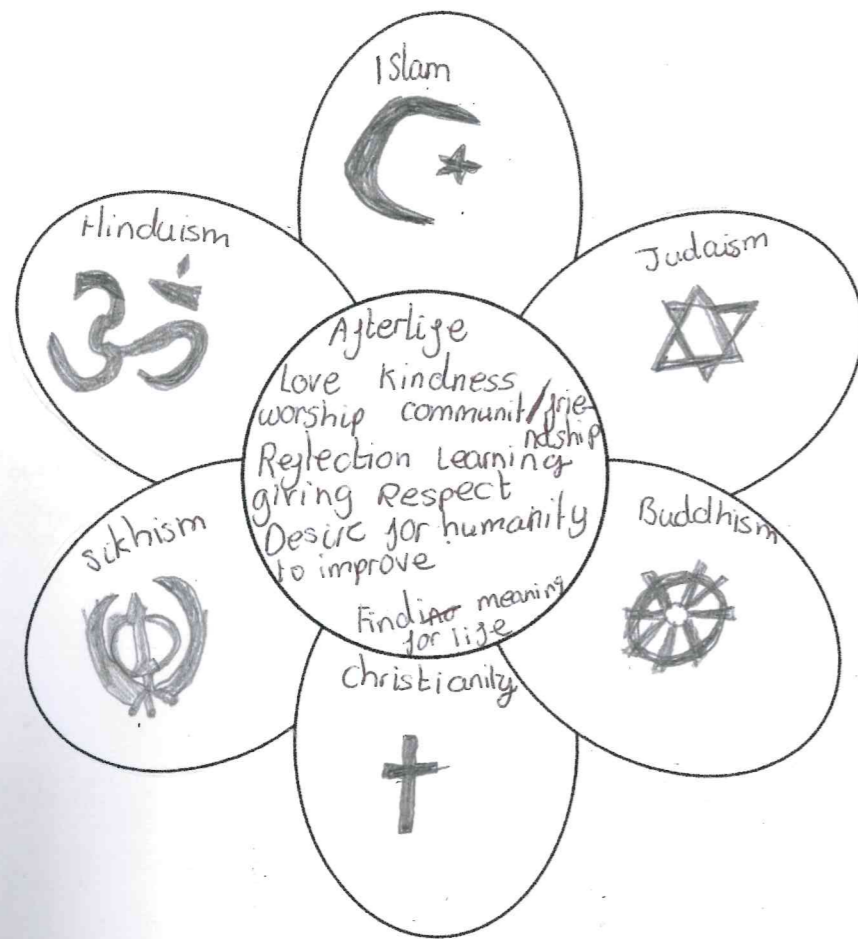 Islam
Hinduism
Judaism
Afterlife
Love Kindness
worship communit/frie-
ndship
Reflection Learning
giving Respect
Desire for humanity
to improve
Finding meaning
for life
Sikhism
Buddhism
Christianity